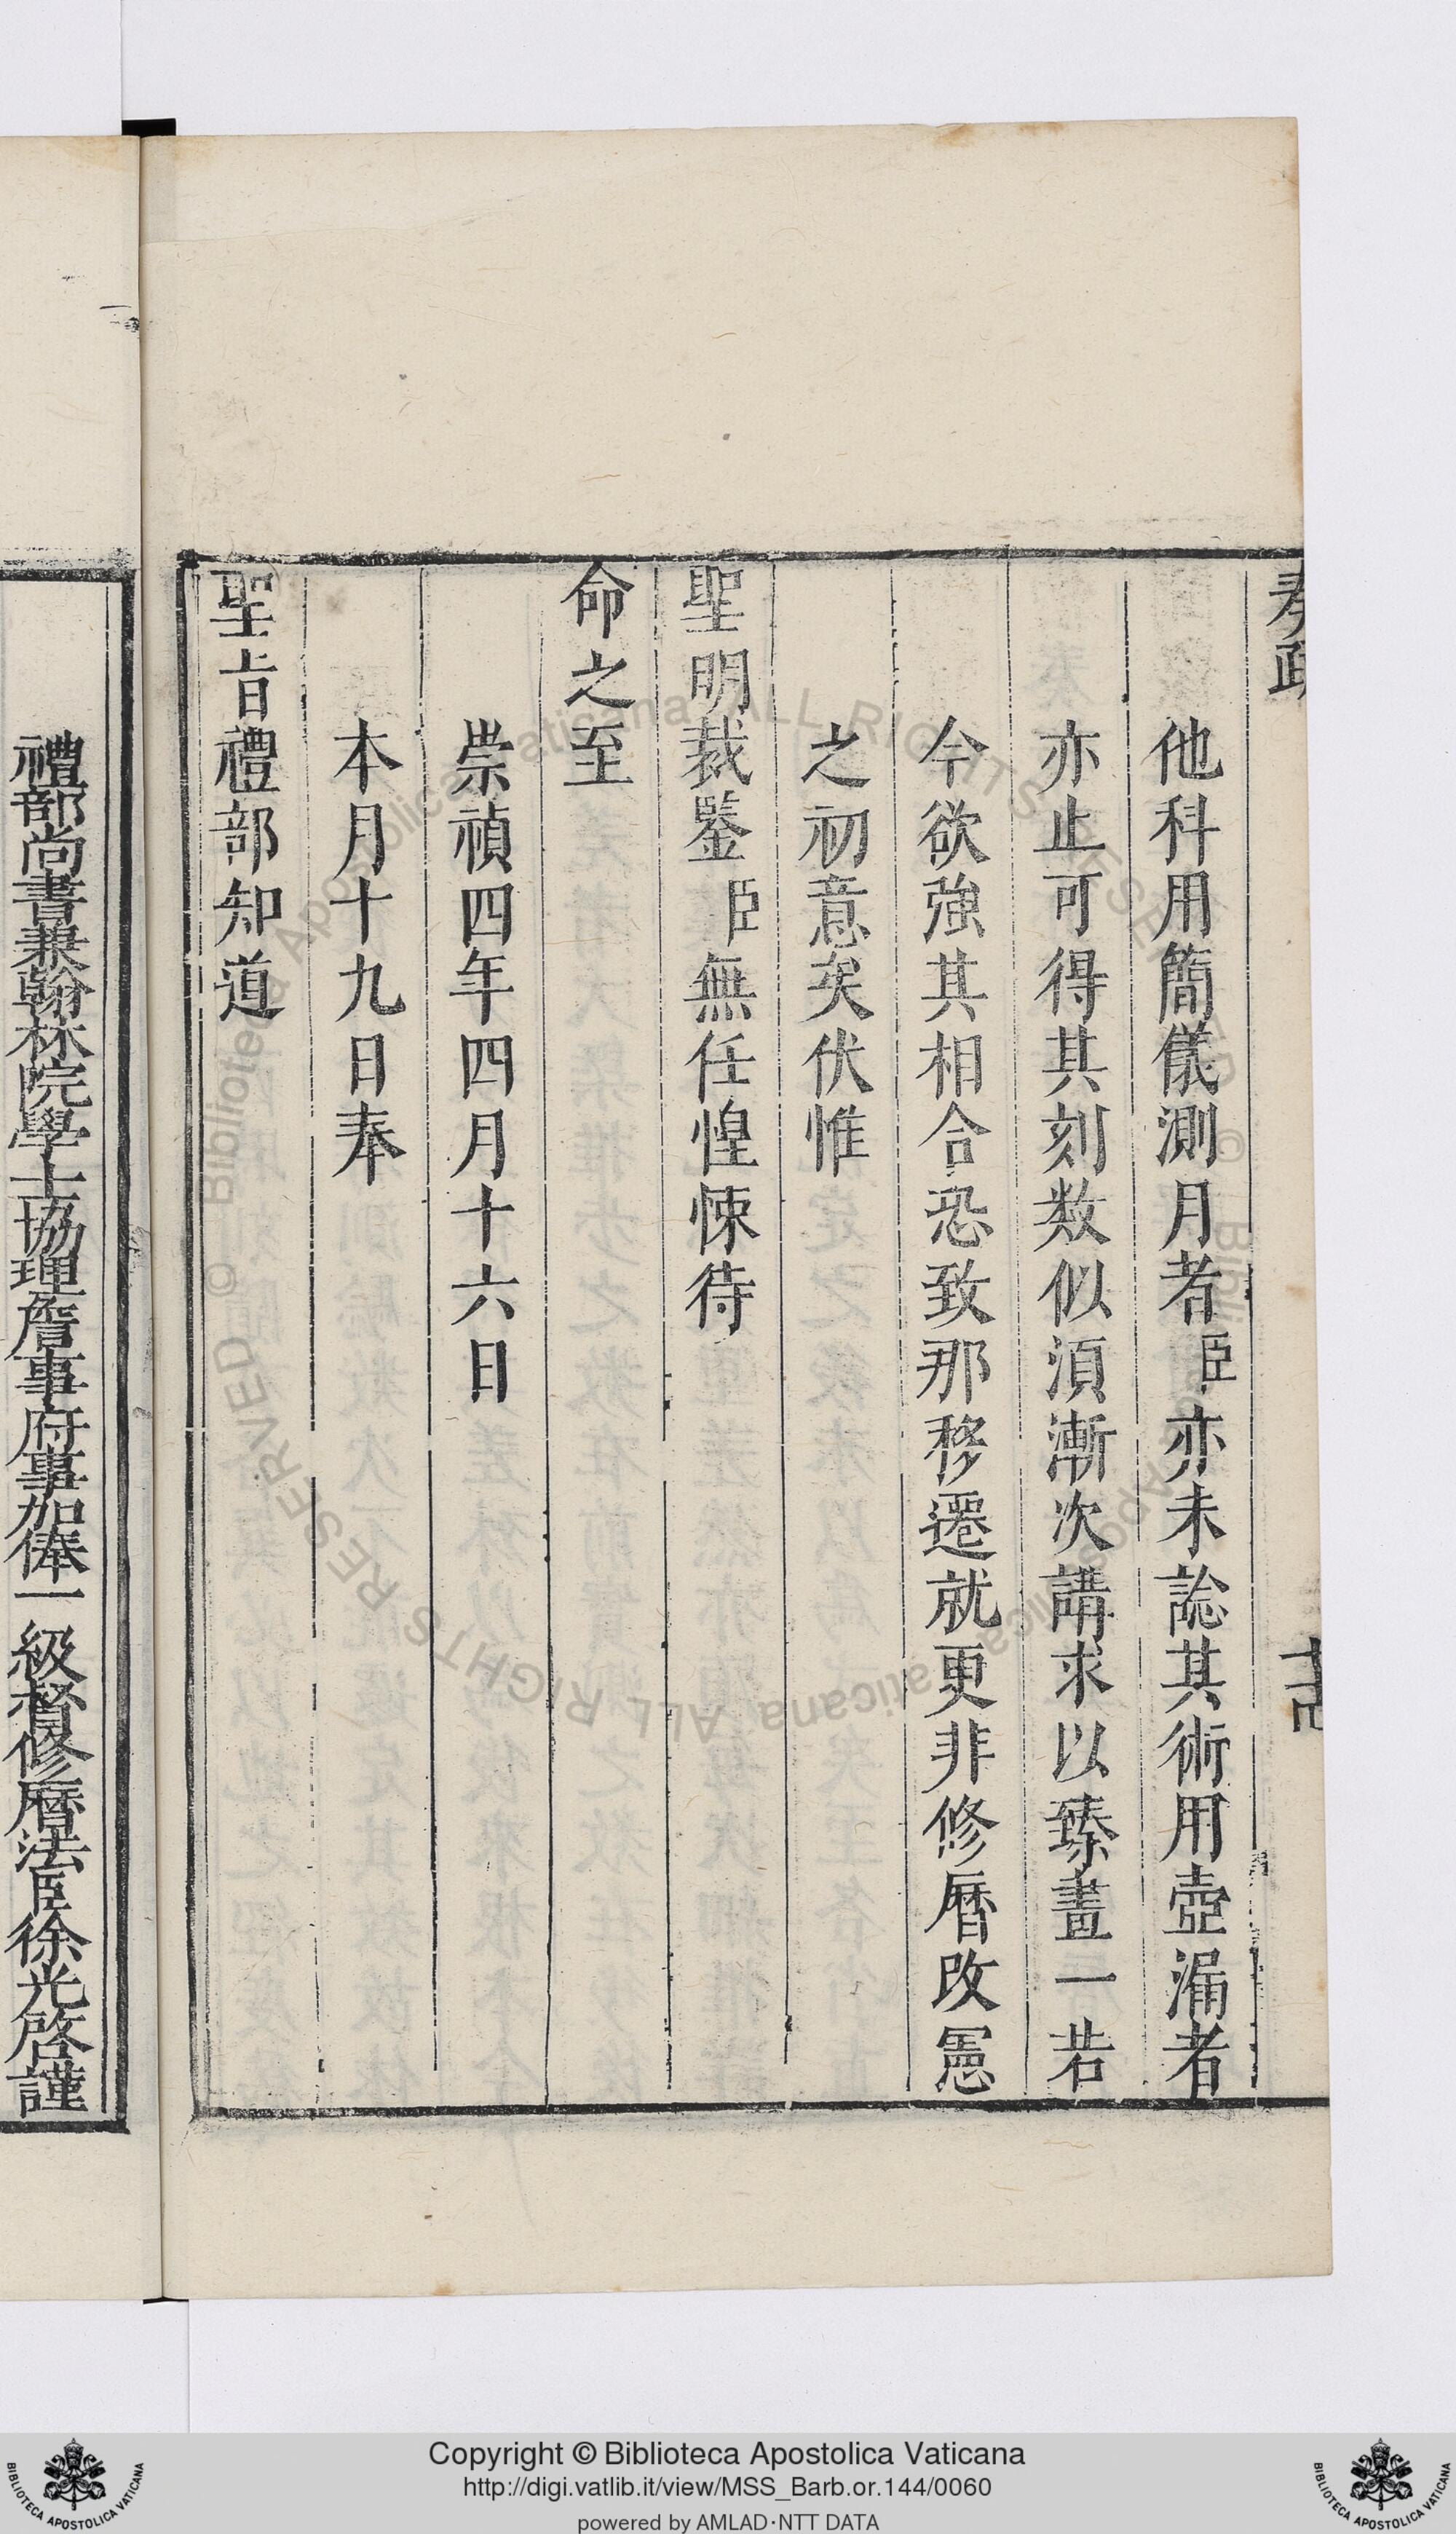 奏疏
他科用簡儀測月者臣亦未諗其術用壺漏者
亦止可得其刻数似須漸次講求以臻畫一若
今欲強其相合恐致那移遷就更非修曆改憲
之初意矣伏惟
聖明裁鑒臣無任惶悚待
命之至
崇禎四年四月十六日
本月十九日奉
聖旨禮部知道
禮部尚書兼翰林院學士協理詹事府事加俸一級督修曆法臣徐光啓謹
Copyright © Biblioteca Apostolica Vaticana
http://digi.vatlib.it/view/MSS_Barb.or.144/0060
powered by AMLAD·NTT DATA
BIBLIOTECA APOSTOLICA VATICANA
BIBLIOTECA APOSTOLICA VATICANA